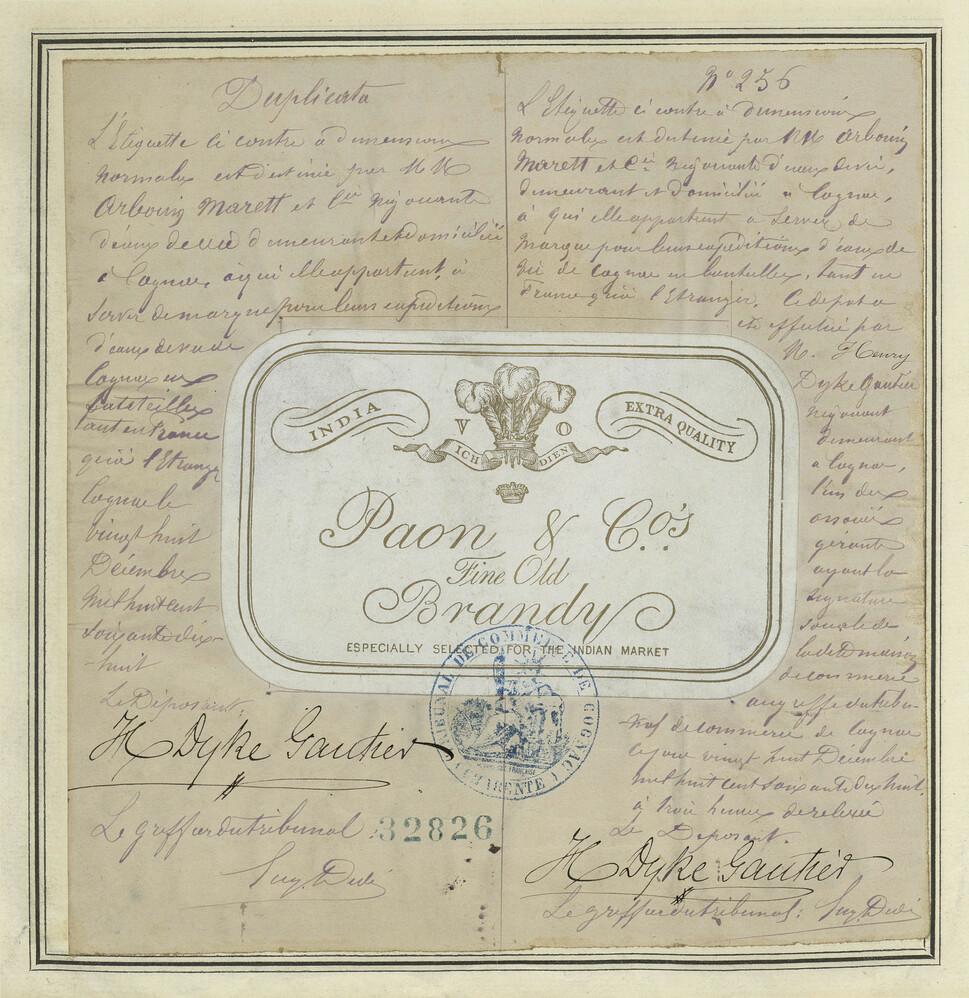 Duplicata
L'Etiquette ci contre à dimensions
normales est destinée par MM
Arbouin Marett et Cie Négociants
d'eaux de vie demeurant et domiciliés
à Cognac, à qui elle appartient, à
servir de marque pour leurs expéditions
d'eaux de vie de
Cognac en
bouteilles
tant en France
qu'à l'Etranger
Cognac le
vingt huit
Décembre
mil huit cent
soixante dix-
-huit
Le Déposant:
H Dyke Gautier
Le greffier du tribunal
32826
N° 256
L'Etiquette ci contre à dimensions
normales est destinée par MM Arbouin
Marett et Cie Négociants d'eaux de vie,
demeurant et domiciliés à Cognac,
à qui elle appartient à servir de
marque pour leurs expéditions d'eaux de
vie de Cognac en bouteilles, tant en
France qu'à l'Etranger. Ce dépôt a
été effectué par
M. Henry
Dyke Gautier
négociant
demeurant
à Cognac,
l'un des
associés
gérants
ayant la
signature
sociale de
la dite maison
de commerce
au greffe du tribu-
nal de commerce de Cognac
ce jour vingt huit Décembre
mil huit cent soixante dix huit,
à trois heures de relevée
Le Déposant.
H Dyke Gautier
Le greffier du tribunal:
INDIA
V O
EXTRA QUALITY
ICH DIEN
Paon & Co's
Fine Old
Brandy
ESPECIALLY SELECTED FOR THE INDIAN MARKET
TRIBUNAL DE COMMERCE DE COGNAC
(CHARENTE)